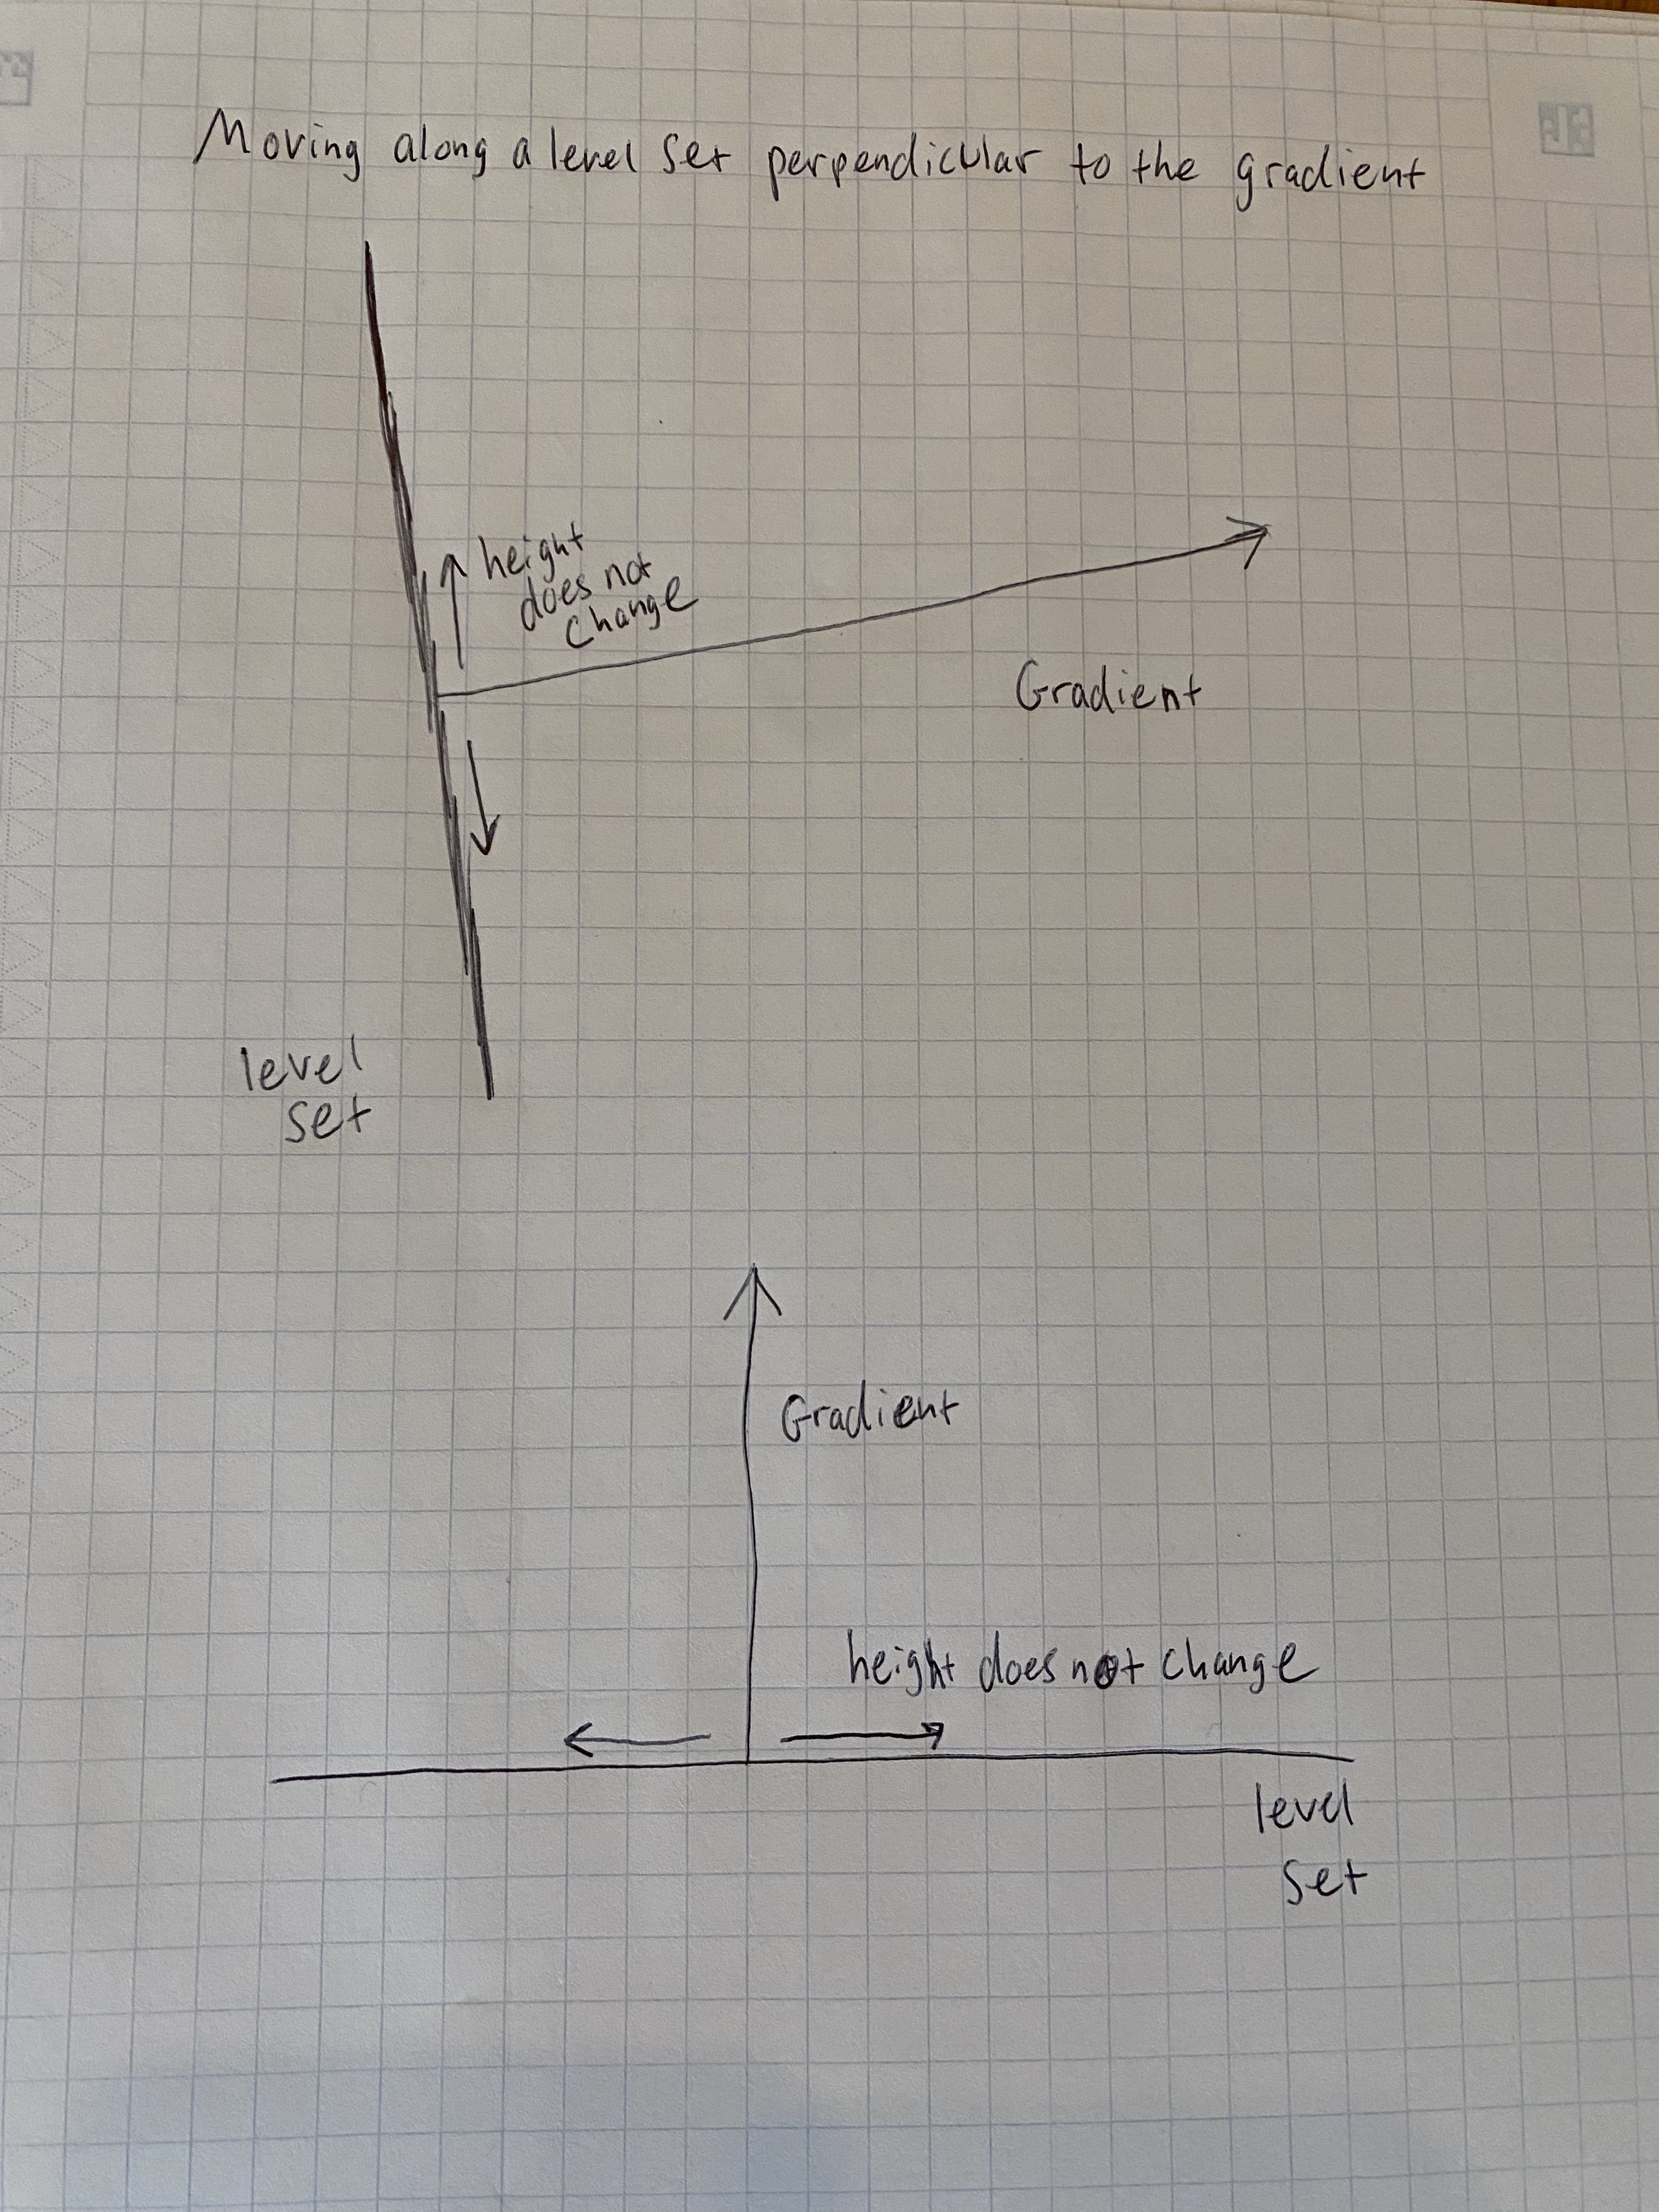 Moving along a level set perpendicular to the gradient
height
does not
change
Gradient
level
set
Gradient
height does not change
level
set